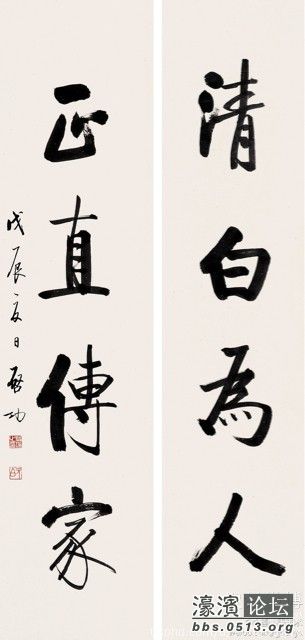 清白為人
正直傳家
戊辰夏日 啓功
濠濱论坛
bbs.0513.org